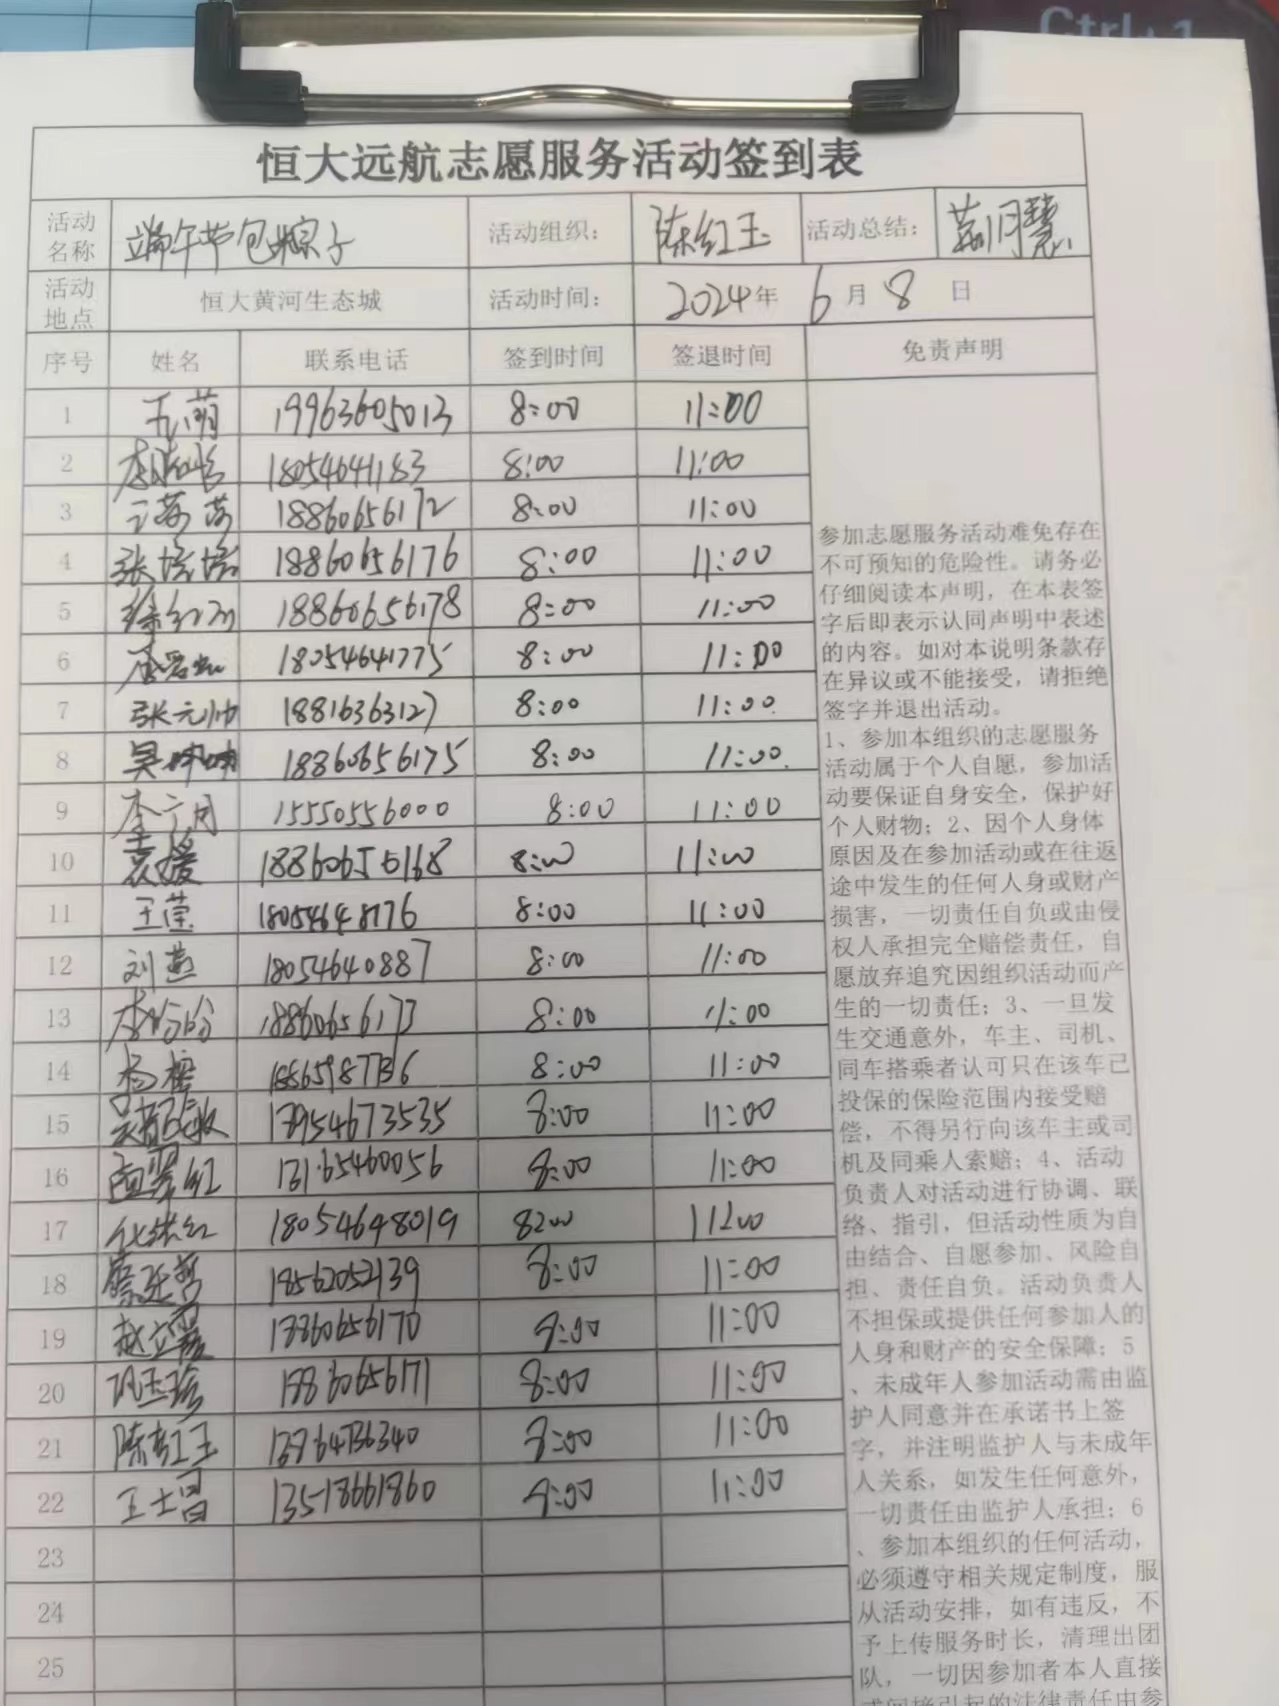 Ctrl+1
恒大远航志愿服务活动签到表
活动名称 端午节包粽子 活动组织： 陈红玉 活动总结： 月慧
活动地点 恒大黄河生态城 活动时间： 2024年 6月 8日
序号 姓名 联系电话 签到时间 签退时间 免责声明
1 萌 19963605013 8:00 11:00
2 18054641183 8:00 11:00
3 18860656172 8:00 11:00
4 张培培 18860656176 8:00 11:00
5 徐红 18860656178 8:00 11:00
6 18054641775 8:00 11:00
7 张元帅 18816363127 8:00 11:00
8 吴 18860656175 8:00 11:00
9 李 15550556000 8:00 11:00
10 袁媛 18860656168 8:00 11:00
11 王莹 18054648176 8:00 11:00
12 刘燕 18054640887 8:00 11:00
13 李 18860656173 8:00 11:00
14 杨 8:00 11:00
15 敏 13954673535 8:00 11:00
16 翠红 13165460056 8:00 11:00
17 红 18054648019 8:00 11:00
18 18562052139 8:00 11:00
19 赵立霞 18860656170 8:00 11:00
20 巩玉珍 18860656171 8:00 11:00
21 陈红玉 8:00 11:00
22 王士昌 8:00 11:00
23
24
25
参加志愿服务活动难免存在
不可预知的危险性。请务必
仔细阅读本声明，在本表签
字后即表示认同声明中表述
的内容。如对本说明条款存
在异议或不能接受，请拒绝
签字并退出活动。
1、参加本组织的志愿服务
活动属于个人自愿，参加活
动要保证自身安全，保护好
个人财物；2、因个人身体
原因及在参加活动或在往返
途中发生的任何人身或财产
损害，一切责任自负或由侵
权人承担完全赔偿责任，自
愿放弃追究因组织活动而产
生的一切责任；3、一旦发
生交通意外，车主、司机、
同车搭乘者认可只在该车已
投保的保险范围内接受赔
偿，不得另行向该车主或司
机及同乘人索赔；4、活动
负责人对活动进行协调、联
络、指引，但活动性质为自
由结合、自愿参加、风险自
担、责任自负。活动负责人
不担保或提供任何参加人的
人身和财产的安全保障；5
、未成年人参加活动需由监
护人同意并在承诺书上签
字，并注明监护人与未成年
人关系，如发生任何意外，
一切责任由监护人承担；6
、参加本组织的任何活动，
必须遵守相关规定制度，服
从活动安排，如有违反，不
予上传服务时长，清理出团
队，一切因参加者本人直接
或间接引起的法律责任由参